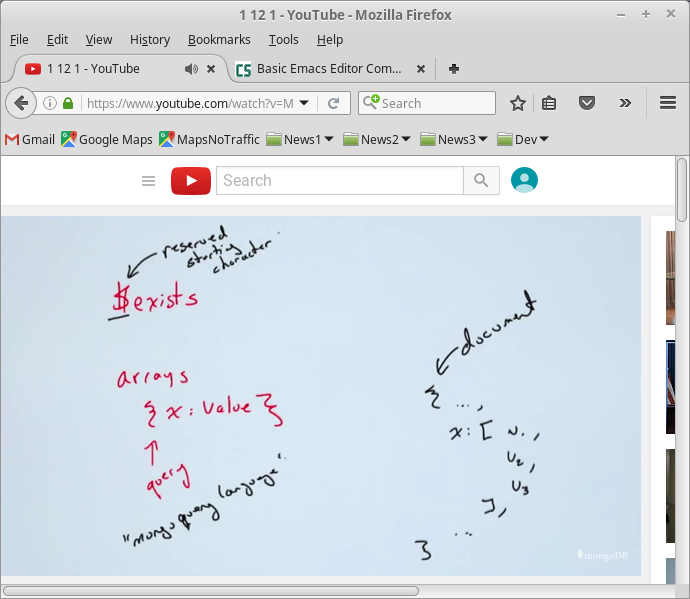 1 12 1 - YouTube - Mozilla Firefox
File Edit View History Bookmarks Tools Help
1 12 1 - YouTube
Basic Emacs Editor Com...
https://www.youtube.com/watch?v=M
Search
Gmail Google Maps MapsNoTraffic News1 News2 News3 Dev
Search
reserved
starting
character
$exists
document
arrays
{ x : value }
query
"mongo query language"
{ ...,
x: [ v1,
v2,
v3
],
...
}
mongoDB